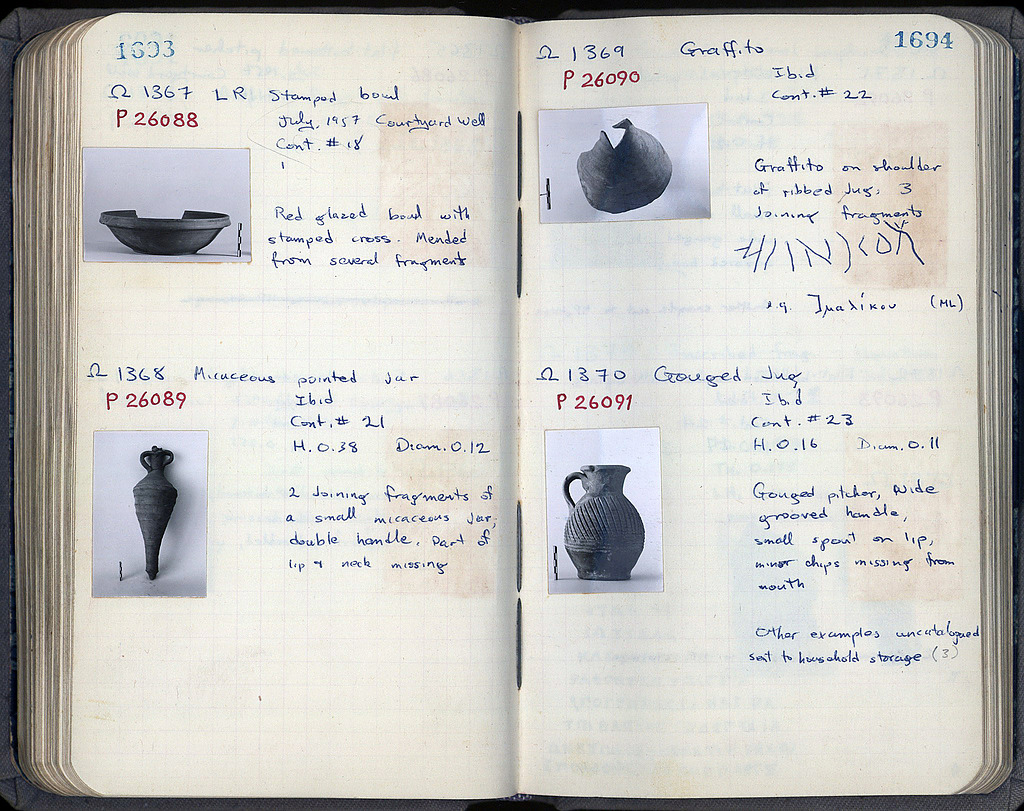 1693
Ω 1367 LR Stamped bowl
P 26088
July, 1957 Courtyard Well
Cont. # 18
1
Red glazed bowl with
stamped cross. Mended
from several fragments
Ω 1368 Micaceous pointed Jar
P 26089
Ibid
Cont. # 21
H. 0.38 Diam. 0.12
2 Joining fragments of
a small micaceous Jar,
double handle, Part of
lip + neck missing
1694
Ω 1369 Graffito
P 26090
Ibid
Cont. # 22
Graffito on shoulder
of ribbed Jug; 3
Joining fragments
e.g. Ἰμαλίκου (ML)
Ω 1370 Gouged Jug
P 26091
Ibid
Cont. # 23
H. 0.16 Diam. 0.11
Gouged pitcher, Wide
grooved handle,
small spout on lip,
minor chips missing from
mouth
Other examples uncatalogued
sent to household storage (3)